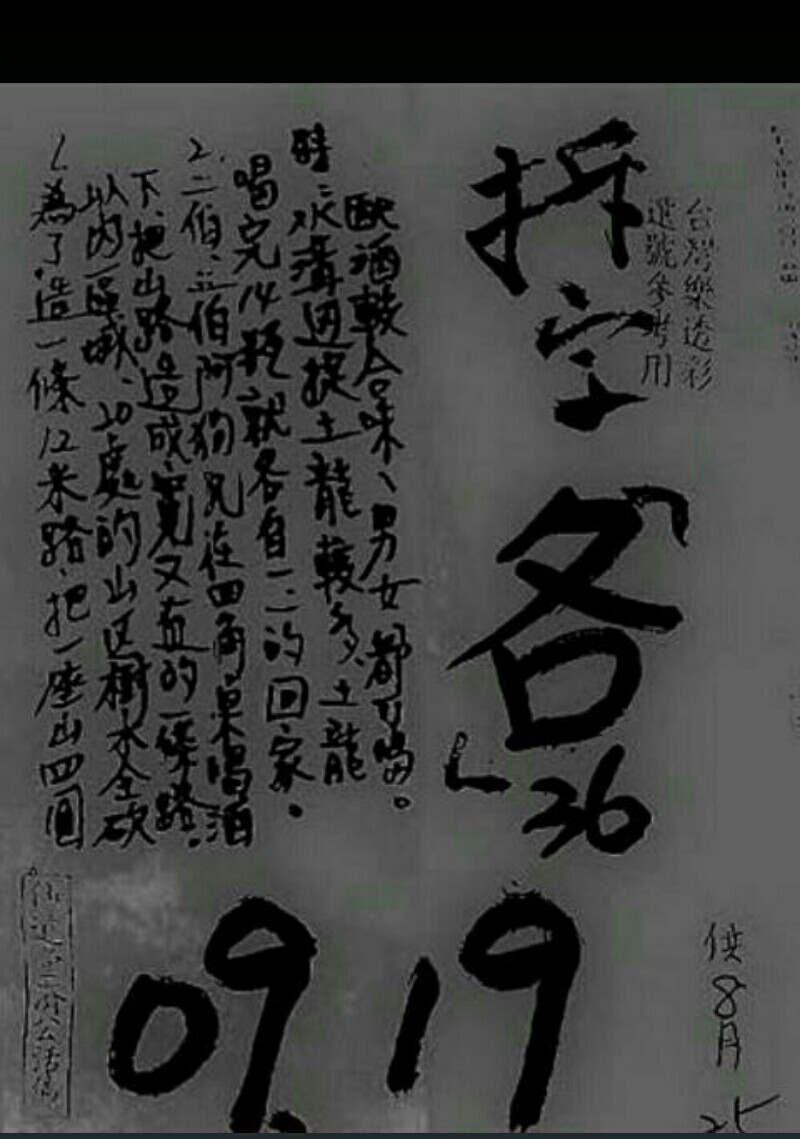 台灣樂透彩
選號參考用
拆字
「各」36
09.19
供8月25
歐酒較合味、男女都可喝。
時:水溝邊捉土龍較多、土龍
喝完14瓶就各自一一的回家。
2.二伯、五伯阿狗兄在四角桌喝酒
下、把山路造成寬又直的一條路、
以內區域、20處的山區樹木全砍
1.為了造一條12米路、把一座山四圓